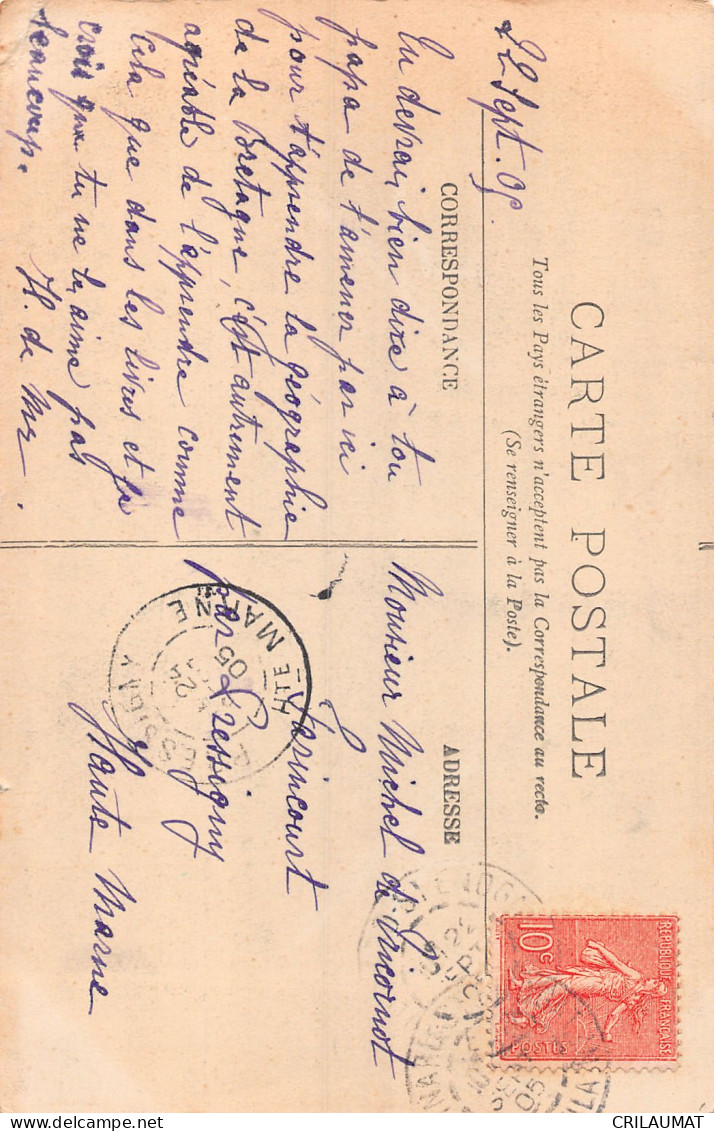 CARTE POSTALE
Tous les Pays étrangers n'acceptent pas la Correspondance au recto.
(Se renseigner à la Poste).
CORRESPONDANCE
ADRESSE
22 Sept. 05
Tu devrai bien dire à ton
papa de t'amener par ici
pour t'apprendre la géographie
de la Bretagne, c'est autrement
agréable de l'apprendre comme
cela que dans les livres et je
crois que tu ne les aime pas
beaucoup.
H. de Mz.
Monsieur Michel de Vricornot
Farincourt
par Pressigny
Haute Marne
PRESSIGNY
HTE MARNE
24
05
REPUBLIQUE FRANÇAISE
10c
POSTES
CRILAUMAT